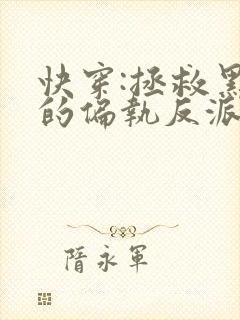 快穿:拯救黑
的偏执反派
隋永军